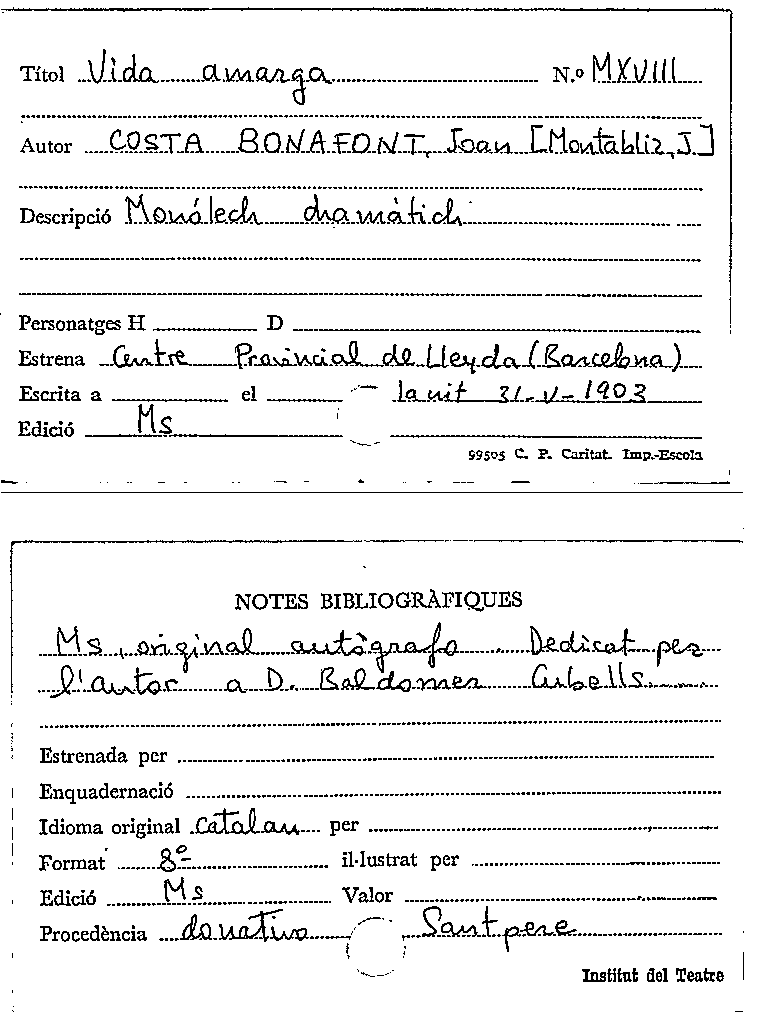 Títol Vida amarga N.º MXVIII
Autor COSTA BONAFONT, Joan [Montabliz, J.]
Descripció Monólech dramàtich
Personatges H D
Estrena Centre Provincial de Lleyda (Barcelona)
Escrita a el la nit 31-V-1903
Edició Ms
99505 C. P. Caritat. Imp.-Escola
NOTES BIBLIOGRÀFIQUES
Ms, original autògrafo. Dedicat per
l'autor a D. Baldomer Cubells.
Estrenada per
Enquadernació
Idioma original catalan per
Format 8º il·lustrat per
Edició Ms Valor
Procedència donativo Santpere
Institut del Teatre